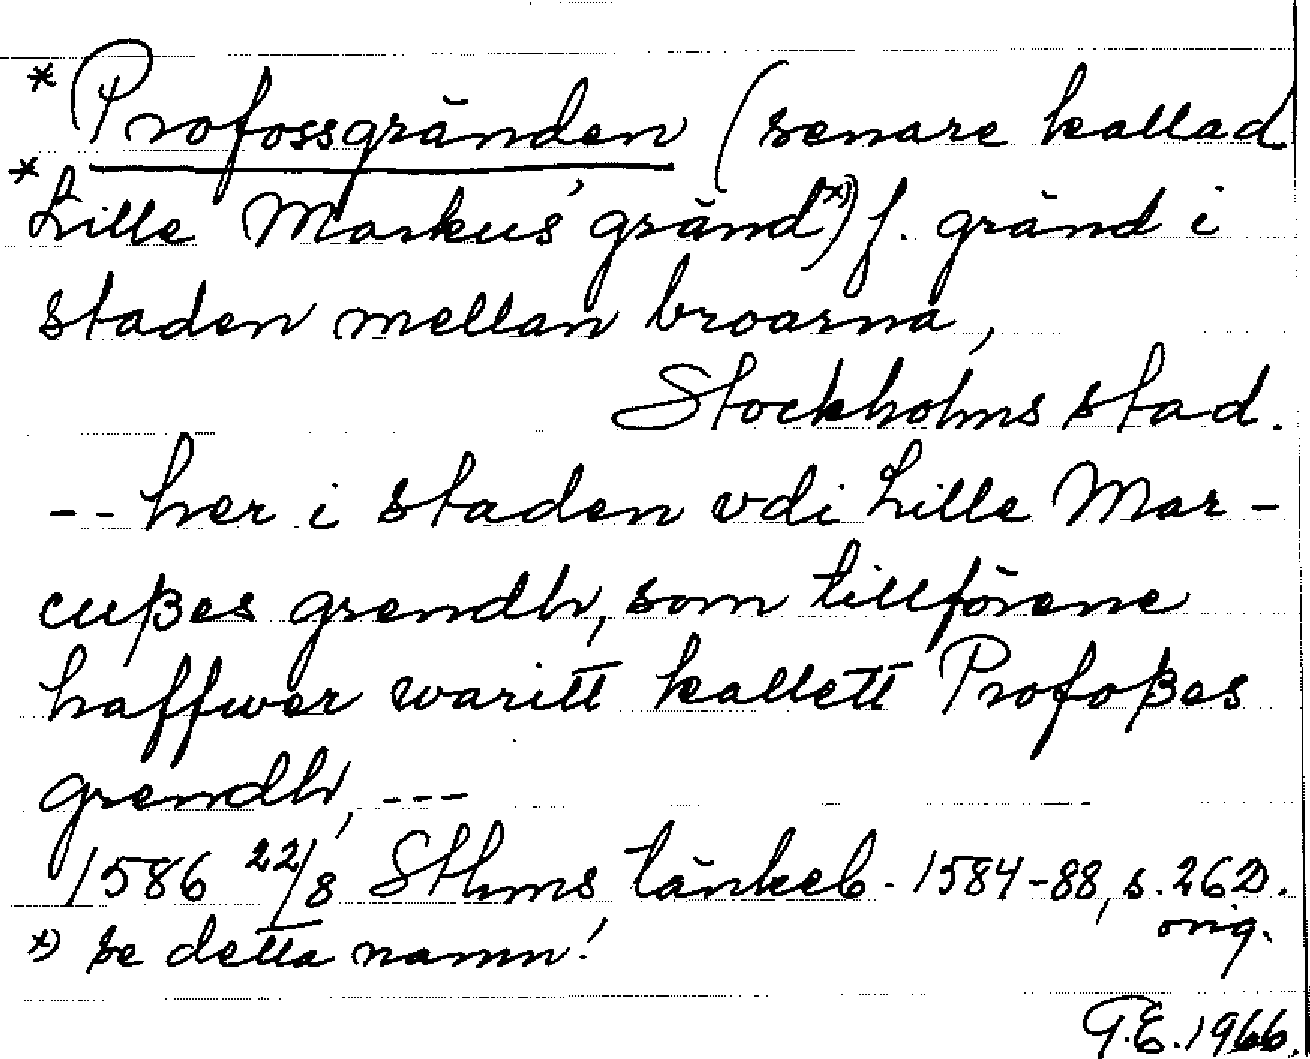 * Profossgränden (senare kallad
* Lille Markus' gränd*)) f. gränd i
staden mellan broarna,
Stockholms stad.
-- her i staden vdi Lille Mar-
cußes grendh, som tillförene
haffwer waritt kallett Profoßes
grendh, ---
1586 22/8 Sthms tänkeb. 1584-88, s. 262.
orig.
*) se detta namn!
G.E. 1966.